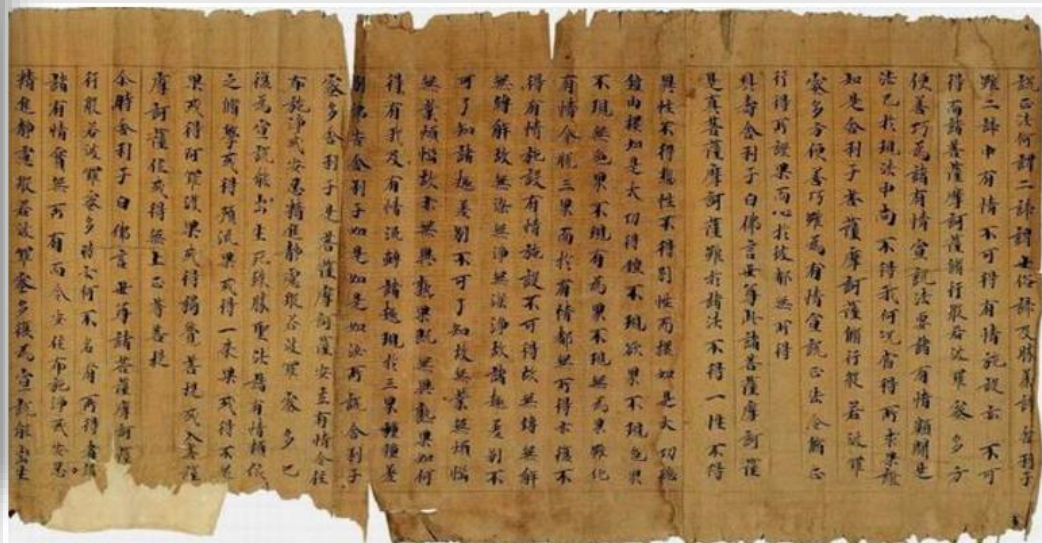 說正法何謂二諦謂世俗諦及勝義諦舍利子
雖二諦中有情不可得有情施設亦不可
得而諸菩薩摩訶薩脩行般若波羅蜜多方
便善巧為諸有情宣說法要諸有情類聞是
法已於現法中尚不得我何況當得所求果證
如是舍利子菩薩摩訶薩脩行般若波羅
蜜多方便善巧雖為有情宣說正法令脩正
行得所證果而心於彼都無所得
具壽舍利子白佛言世尊此諸菩薩摩訶薩
是真菩薩摩訶薩雖於諸法不得一性不得
異性不得總性不得別性而擐如是大功德
鎧由擐如是大功德鎧不現欲界不現色界
不現無色界不現有為界不現無為界雖化
有情令脫三界而於有情都無所得亦復不
得有情施設有情施設不可得故無縛無解
無縛解故無染無淨無染淨故諸趣差別不
可了知諸趣差別不可了知故無業無煩惱
無業煩惱故亦無異熟果既無異熟果如何
得有我及有情流轉諸趣現於三界種種差
別佛告舍利子如是如是如汝所說舍利子
蜜多舍利子是菩薩摩訶薩安立有情令住
布施淨戒安忍精進靜慮般若波羅蜜多已
復為宣說能出生死殊勝聖法諸有情類依
之脩學或得預流果或得一來果或得不還
果或得阿羅漢果或得獨覺菩提或入菩薩
摩訶薩位或得無上正等菩提
尒時舍利子白佛言世尊諸菩薩摩訶薩
行般若波羅蜜多時云何不名有所得者
諸有情實無所有而令安住布施淨戒安忍
精進靜慮般若波羅蜜多復為宣說能出生